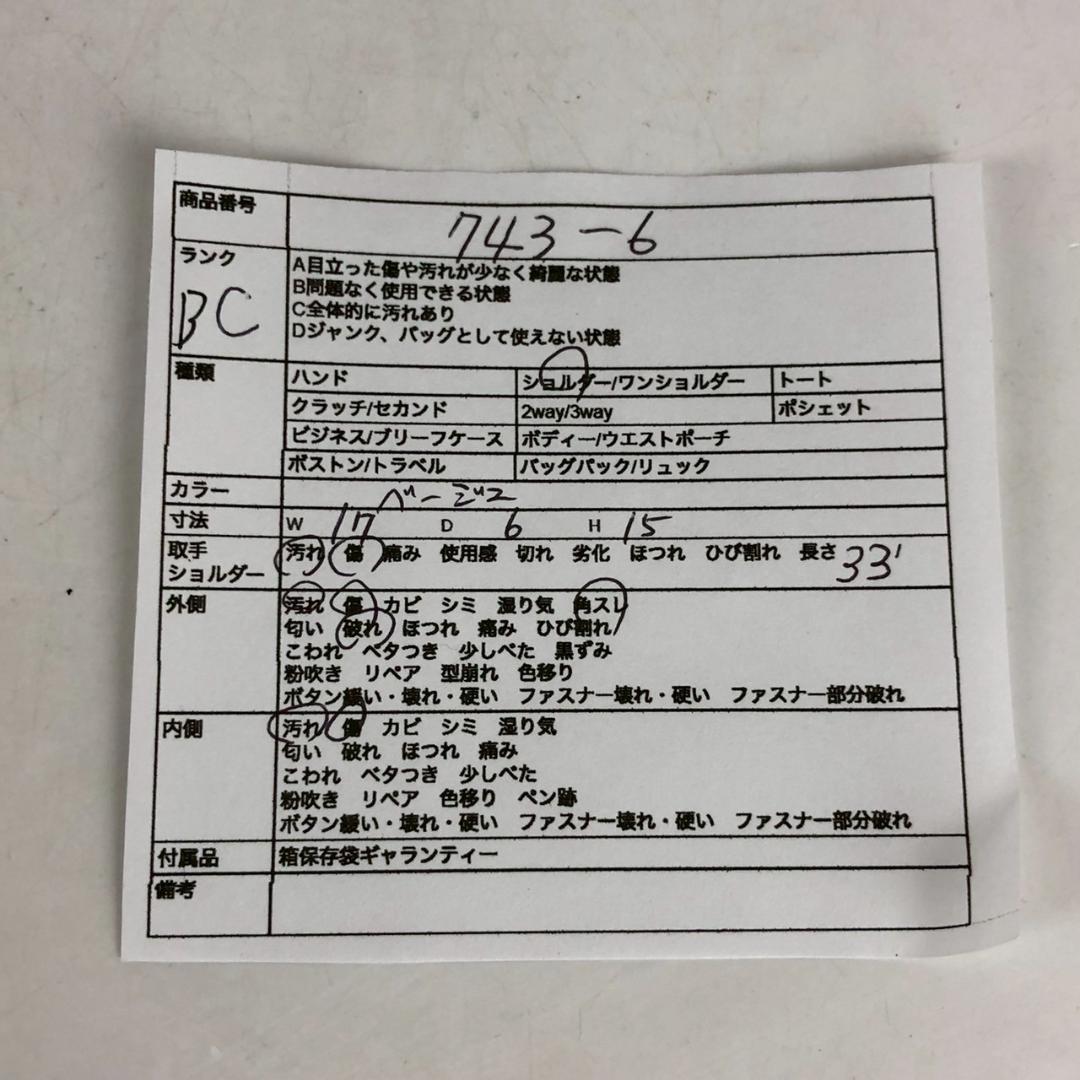 商品番号 743-6
ランク BC
A目立った傷や汚れが少なく綺麗な状態
B問題なく使用できる状態
C全体的に汚れあり
Dジャンク、バッグとして使えない状態
種類 ハンド ショルダー/ワンショルダー トート
クラッチ/セカンド 2way/3way ポシェット
ビジネス/ブリーフケース ボディー/ウエストポーチ
ボストン/トラベル バッグパック/リュック
カラー ベージュ
寸法 W 17 D 6 H 15
取手 汚れ 傷 痛み 使用感 切れ 劣化 ほつれ ひび割れ 長さ 33'
ショルダー
外側 汚れ 傷 カビ シミ 湿り気 角スレ
匂い 破れ ほつれ 痛み ひび割れ
こわれ ベタつき 少しべた 黒ずみ
粉吹き リペア 型崩れ 色移り
ボタン緩い・壊れ・硬い ファスナー壊れ・硬い ファスナー部分破れ
内側 汚れ 傷 カビ シミ 湿り気
匂い 破れ ほつれ 痛み
こわれ ベタつき 少しべた
粉吹き リペア 色移り ペン跡
ボタン緩い・壊れ・硬い ファスナー壊れ・硬い ファスナー部分破れ
付属品 箱保存袋ギャランティー
備考